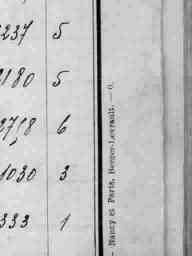 237 5
180 5
6
1030 3
333 1
Nancy et Paris, Berger-Levrault. — O.